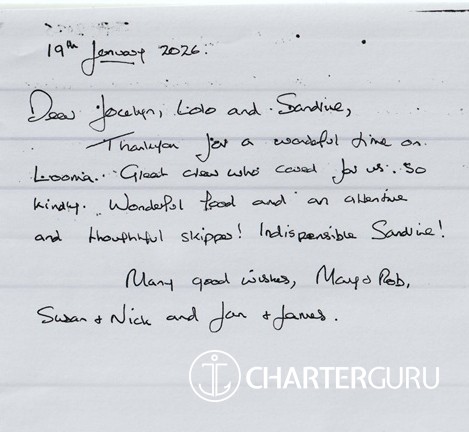 19th January 2026.
Dear Jocelyn, Lolo and Sandrine,
Thankyou for a wonderful time on
Loonia. Great crew who cared for us so
kindly. Wonderful food and an attentive
and thoughtful skipper! Indispensible Sandrine!
Many good wishes, Mary & Rob,
Susan & Nick and Jan & James.
CHARTERGURU